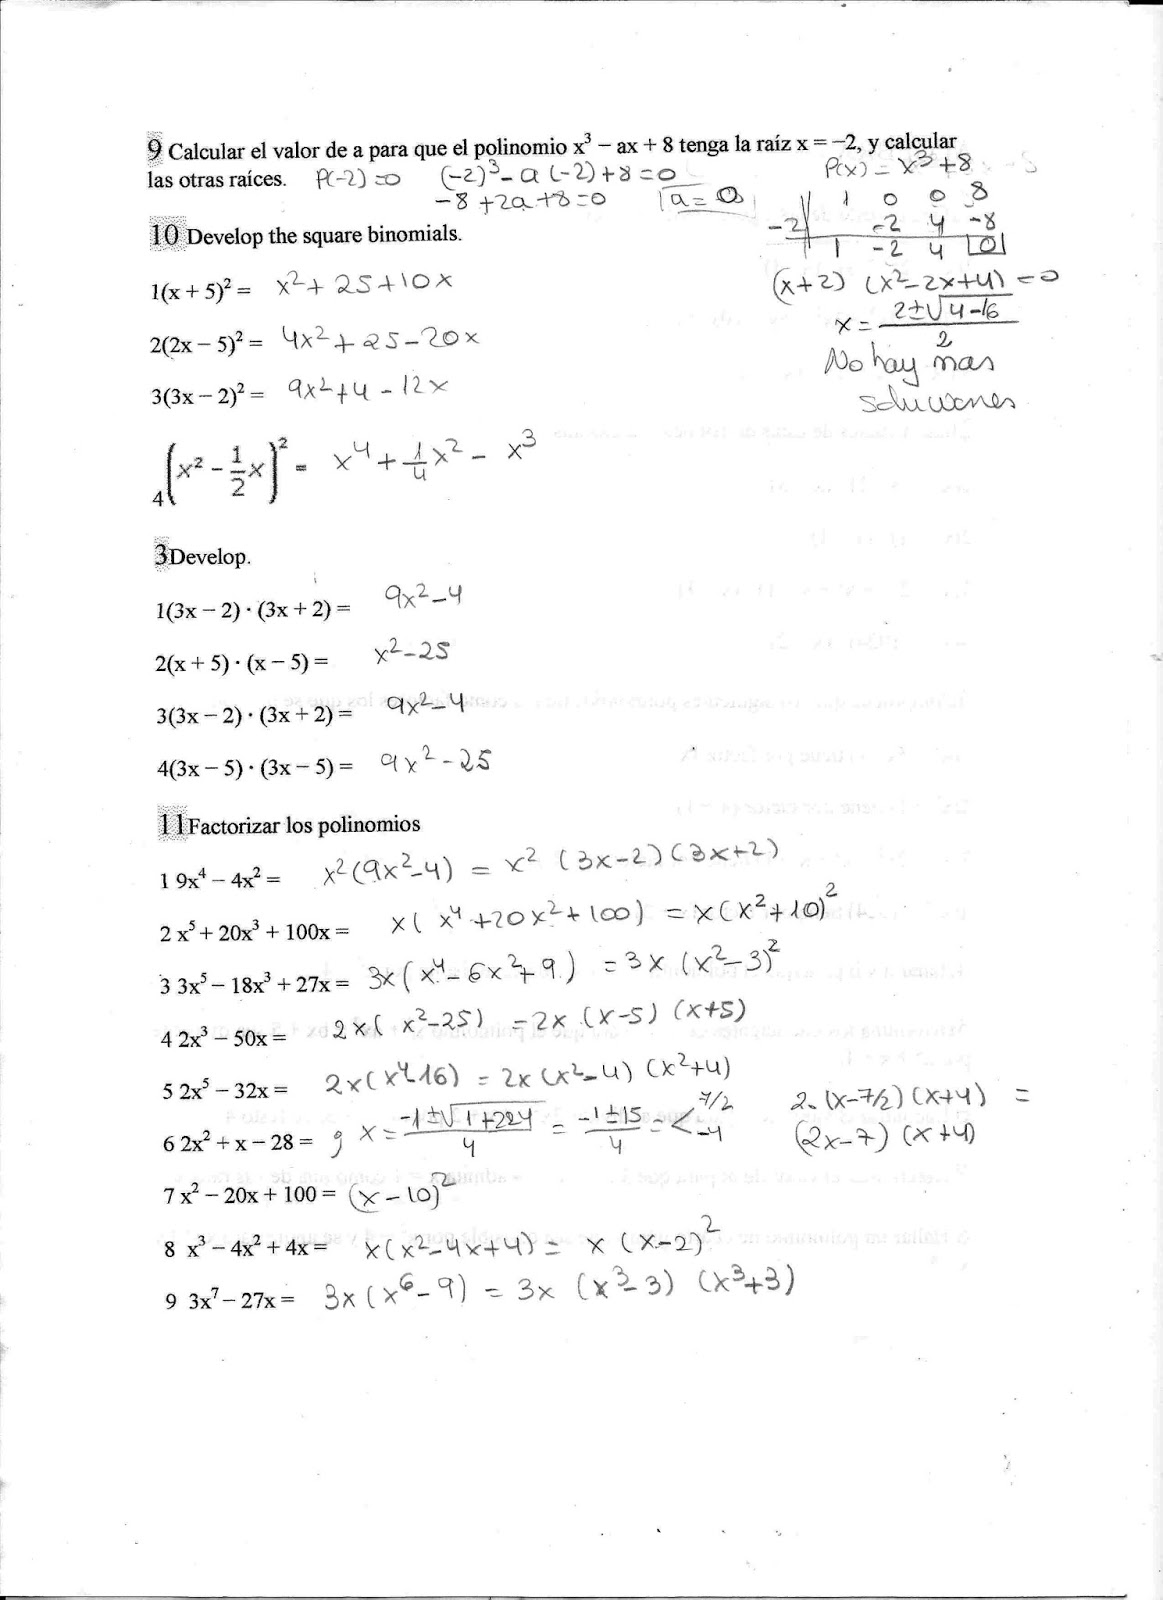 9 Calcular el valor de a para que el polinomio x³ − ax + 8 tenga la raíz x = −2, y calcular
las otras raíces. P(-2)=0 (-2)³-a(-2)+8=0
-8+2a+8=0 a=0
P(x)=x³+8
1 0 0 8
-2 -2 4 -8
1 -2 4 0
(x+2) (x²-2x+4)=0
x = (2±√(4-16))/2
No hay mas
soluciones
10 Develop the square binomials.
1(x + 5)² = x²+25+10x
2(2x − 5)² = 4x²+25-20x
3(3x − 2)² = 9x²+4-12x
4(x² − 1/2 x)² = x⁴+1/4x²-x³
3Develop.
1(3x − 2) · (3x + 2) = 9x²-4
2(x + 5) · (x − 5) = x²-25
3(3x − 2) · (3x + 2) = 9x²-4
4(3x − 5) · (3x − 5) = 9x²-25
11Factorizar los polinomios
1 9x⁴ − 4x² = x²(9x²-4) = x² (3x-2)(3x+2)
2 x⁵ + 20x³ + 100x = x(x⁴+20x²+100) = x(x²+10)²
3 3x⁵ − 18x³ + 27x = 3x(x⁴-6x²+9) = 3x(x²-3)²
4 2x³ − 50x = 2x(x²-25) = 2x (x-5) (x+5)
5 2x⁵ − 32x = 2x(x⁴-16) = 2x(x²-4) (x²+4)
6 2x² + x − 28 = x = (-1±√(1+224))/4 = (-1±15)/4 = < 7/2 -4 2·(x-7/2)(x+4) =
(2x-7) (x+4)
7 x² − 20x + 100 = (x-10)²
8 x³ − 4x² + 4x = x(x²-4x+4) = x (x-2)²
9 3x⁷ − 27x = 3x(x⁶-9) = 3x (x³-3) (x³+3)